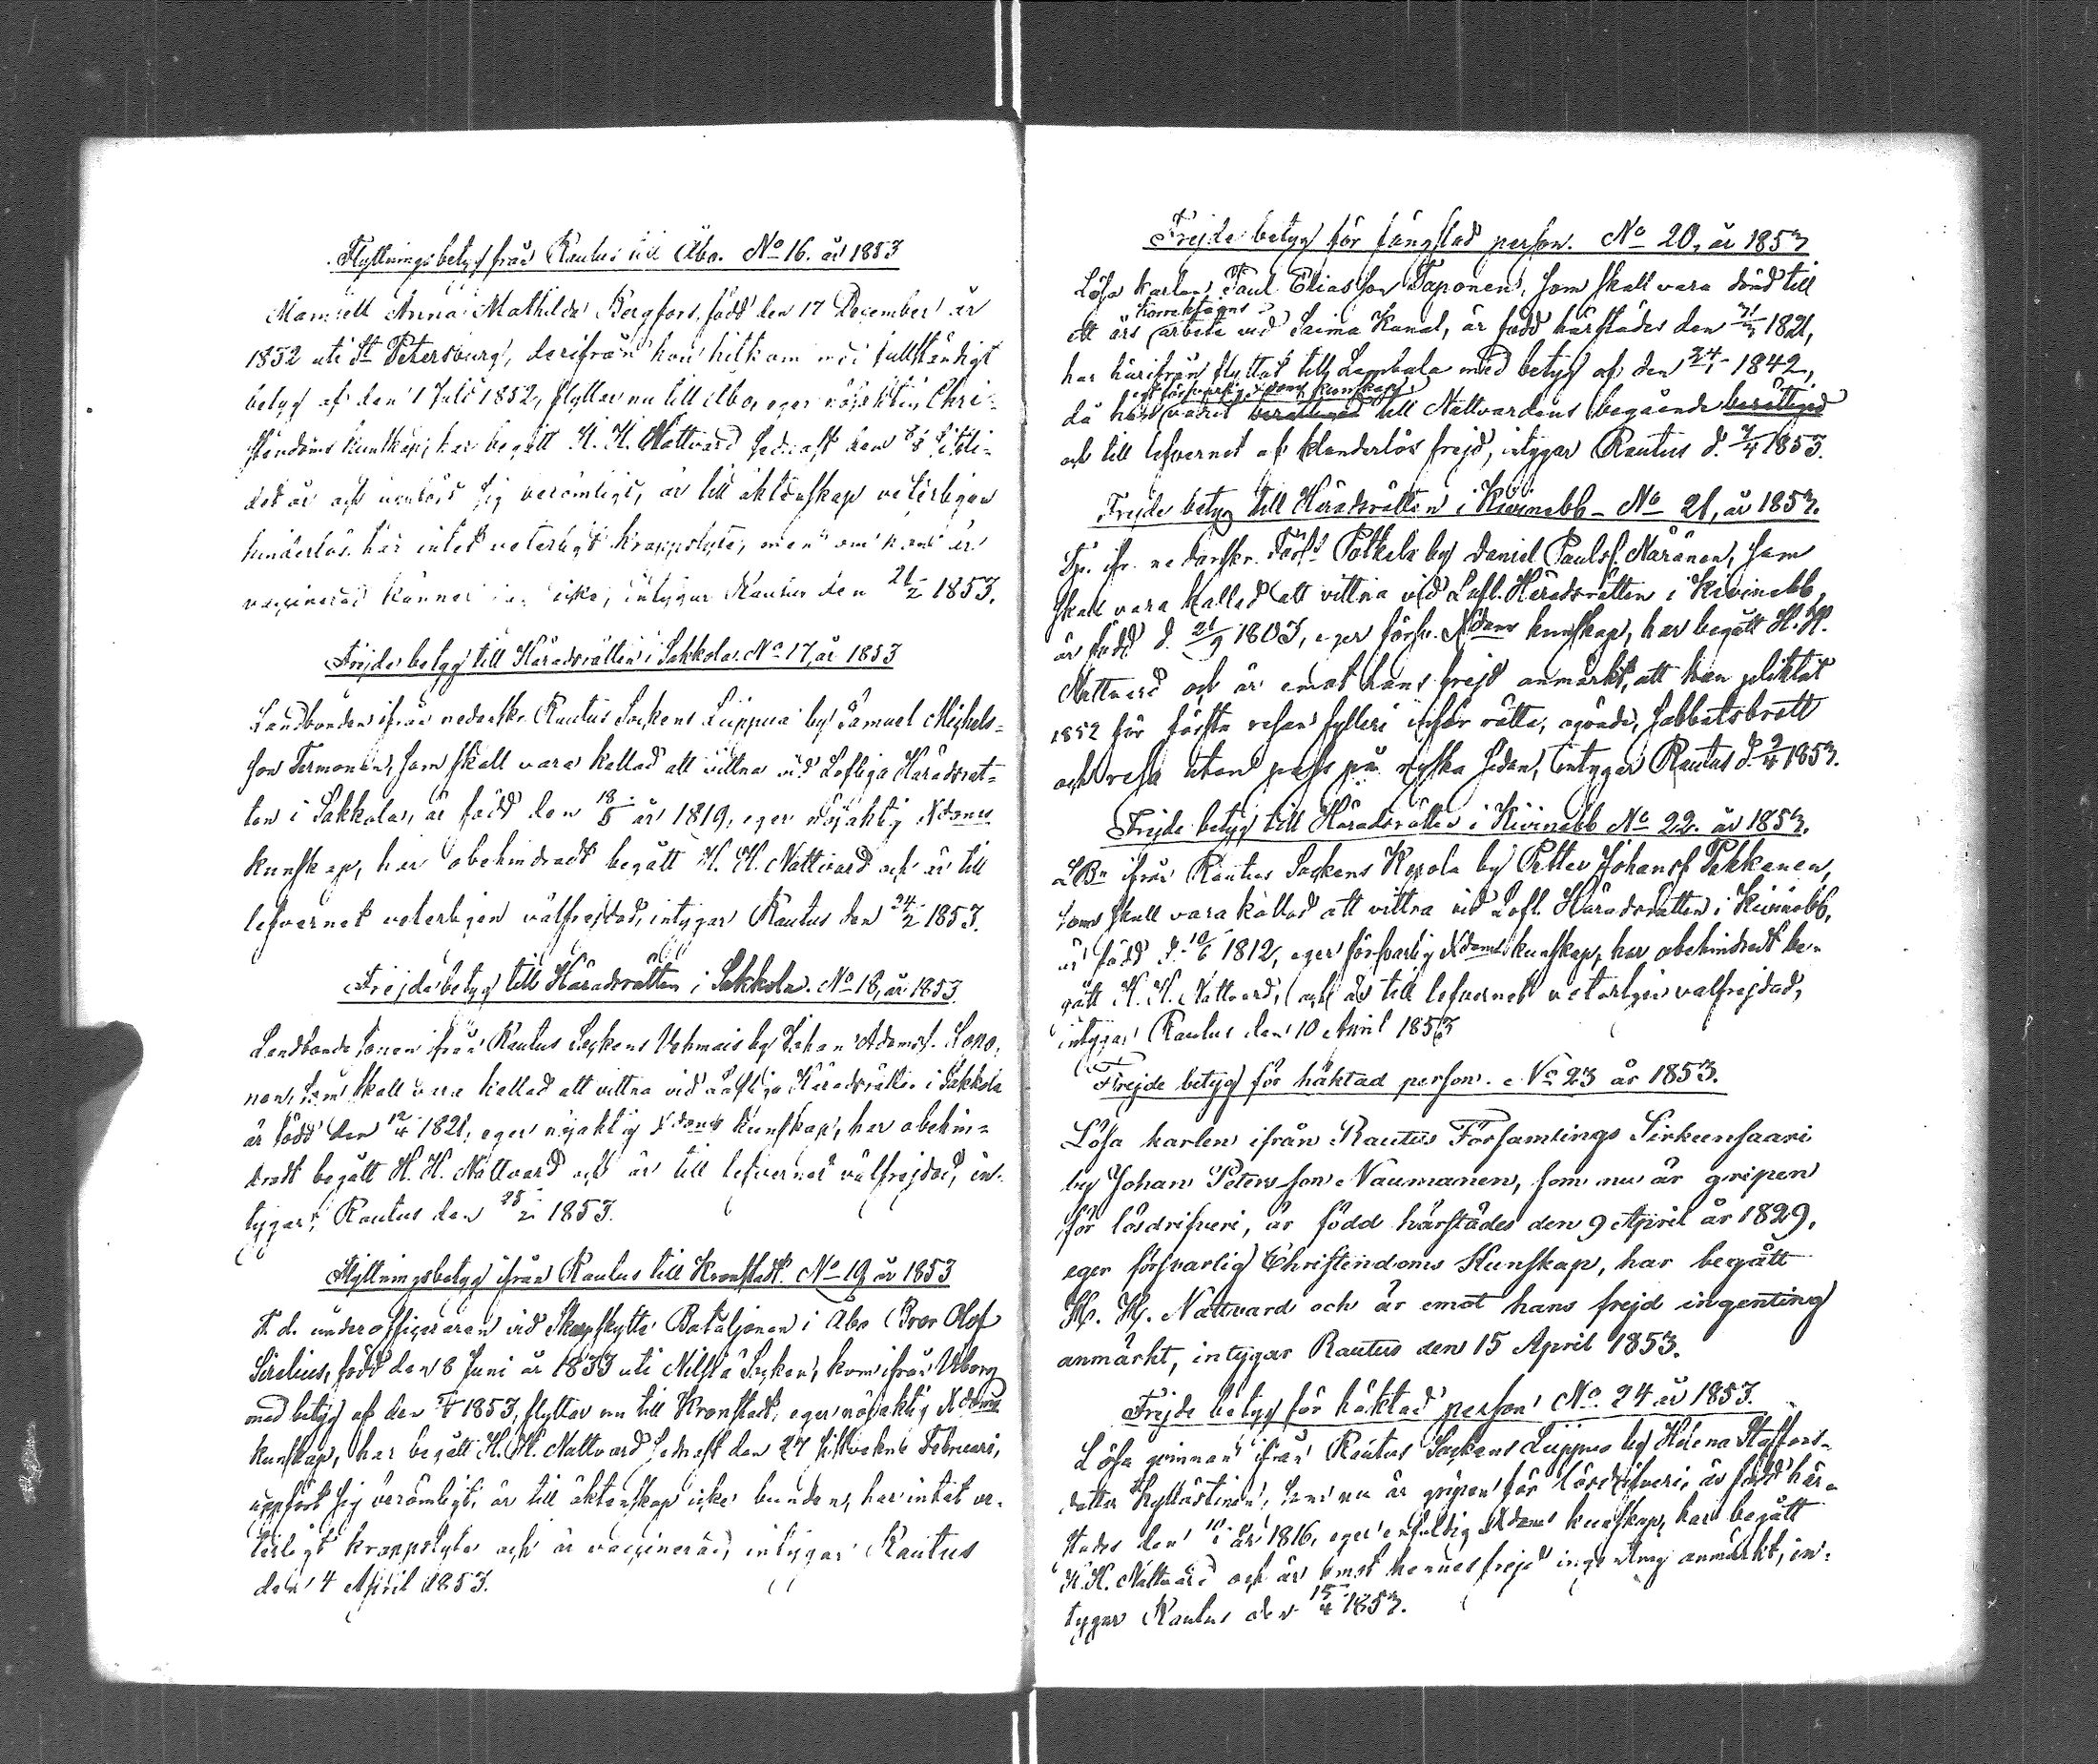 Flyttningsbetyg från Rautus till Åbo. No 16. år 1853
Mamsell Anna Mathilda Bergfors, född den 17 December år
1852 uti St Petersburg, derifrån hon hitkom med fullständigt
betyg af den 1 Juli 1852, flyttar nu till Åbo, eger nöjaktig Chri-
stendoms kunskap, har begått H. H. Nattvard sednast den
det år och uppfört sig berömligt, är till äktenskap veterligen
hinderlös, har intet veterligt kroppslyte, men om hon är
vaccinerad känner jag icke, intygar Rautus den 21/2 1853.
Frejdebetyg till Häradsrätten i Sakkola. No 17, år 1853
Landbonden ifrån nederskr. Rautus Sockens Liippua by Samuel Michels-
son Termonen, som skall vara kallad att vittna vid Lofliga Häradsrät-
ten i Sakkola, är född den 18/8 år 1819, eger nöjaktig Xdoms
kunskap, har obehindradt begått H. H. Nattvard och är till
lefvernet veterligen välfrejdad, intygar Rautus den 24/2 1853.
Frejdebetyg till Häradsrätten i Sakkola. No 18, år 1853.
Landbonde sonen ifrån Rautus Sockens Vehmais by Johan Adamss. Kopo-
nen, som skall vara kallad att vittna vid Lofliga Häradsrätten i Sakkola
är född den 12/4 1821, eger nöjaktig Xdoms kunskap, har obehin-
dradt begått H. H. Nattvard och är till lefvernet välfrejdad, in-
tygar, Rautus den 25/2 1853.
Flyttningsbetyg ifrån Rautus till Kronstadt. No 19 år 1853
F. d. underofficeraren vid Skarpskytte Bataljonen i Åbo Bror Olof
Sirelius, född den 8 Juni år 1833 uti Nilsiä Socken, kom ifrån Wiborg
med betyg af den 5/4 1853, flyttar nu till Kronstadt, eger nöjaktig Xdoms
kunskap, har begått H. H. Nattvard sednast den 27 sistvekne Februari,
uppfört sig berömligt, är till äktenskap icke bunden, har intet ve-
terligt kroppslyte och är vaccinerad, intygar Rautus
den 4 April 1853.
Frejde betyg för fängslad person. No 20, år 1853
Lösa karlen Paul Eliasson Taponen, som skall vara dömd till
Korrektions
ett års arbete vid Saima Kanal, är född härstädes den 31/3 1821,
har härifrån flyttat till Lembala med betyg af den 24/1 1842,
egt försvarlig Xdoms kunskap
då han varit berättigad till Nattvardens begående berättigad
och till lefvernet af klanderlös frejd, intygar Rautus d. 7/4 1853.
Frejde betyg till Häradsrätten i Kivinebb - No 21, år 1853.
Tp. ifr. nedanskr. Förs. Potkela by Daniel Paulss. Näränen, som
skall vara kallad att vittna vid Lofl. Häradsrätten i Kivinebb,
är född d. 21/9 1803, eger försv. Xdoms kunskap, har begått H. H.
Nattvard och är emot hans frejd anmärkt, att han pliktat
1852 för första resan fylleri inför rätta, ogörade, sabbatsbrott
och resa utan pass på ryska sidan, intygar Rautus d. 9/4 1853.
Frejde betyg till Häradsrätten i Kivinebb No 22. år 1853.
LBn ifrån Rautus Sockens Kepola by Petter Johanss. Pekkanen,
som skall vara kallad att vittna vid Lofl. Häradsrätten i Kivinebb,
är född d. 10/6 1812, eger försvarlig Xdoms kunskap, har obehindradt be-
gått H. H. Nattvard, och är till lefvernet veterligen välfrejdad,
intygar Rautus den 10 April 1853
Frejde betyg för häktad person. No 23 år 1853.
Lösa karlen ifrån Rautus Församlings Sirkunsaari
by Johan Petersson Naumanen, som nu är gripen
för lösdrifveri, är född härstädes den 9 April år 1829,
eger försvarlig Christendoms Kunskap, har begått
H. H. Nattvard och är emot hans frejd ingenting
anmärkt, intygar Rautus den 15 April 1853.
Frejde betyg för häktad person No. 24 år 1853.
Lösa qvinnan ifrån Rautus Sockens Liippua by Helena Staffans-
dotter Kyllästinen, som nu är gripen för lösdrifveri, är född här-
städes den år 1816, eger enfaldig Xdoms kunskap, har begått
H. H. Nattvard och är emot hennes frejd ingenting anmärkt, in-
tygar Rautus den 15/4 1853.